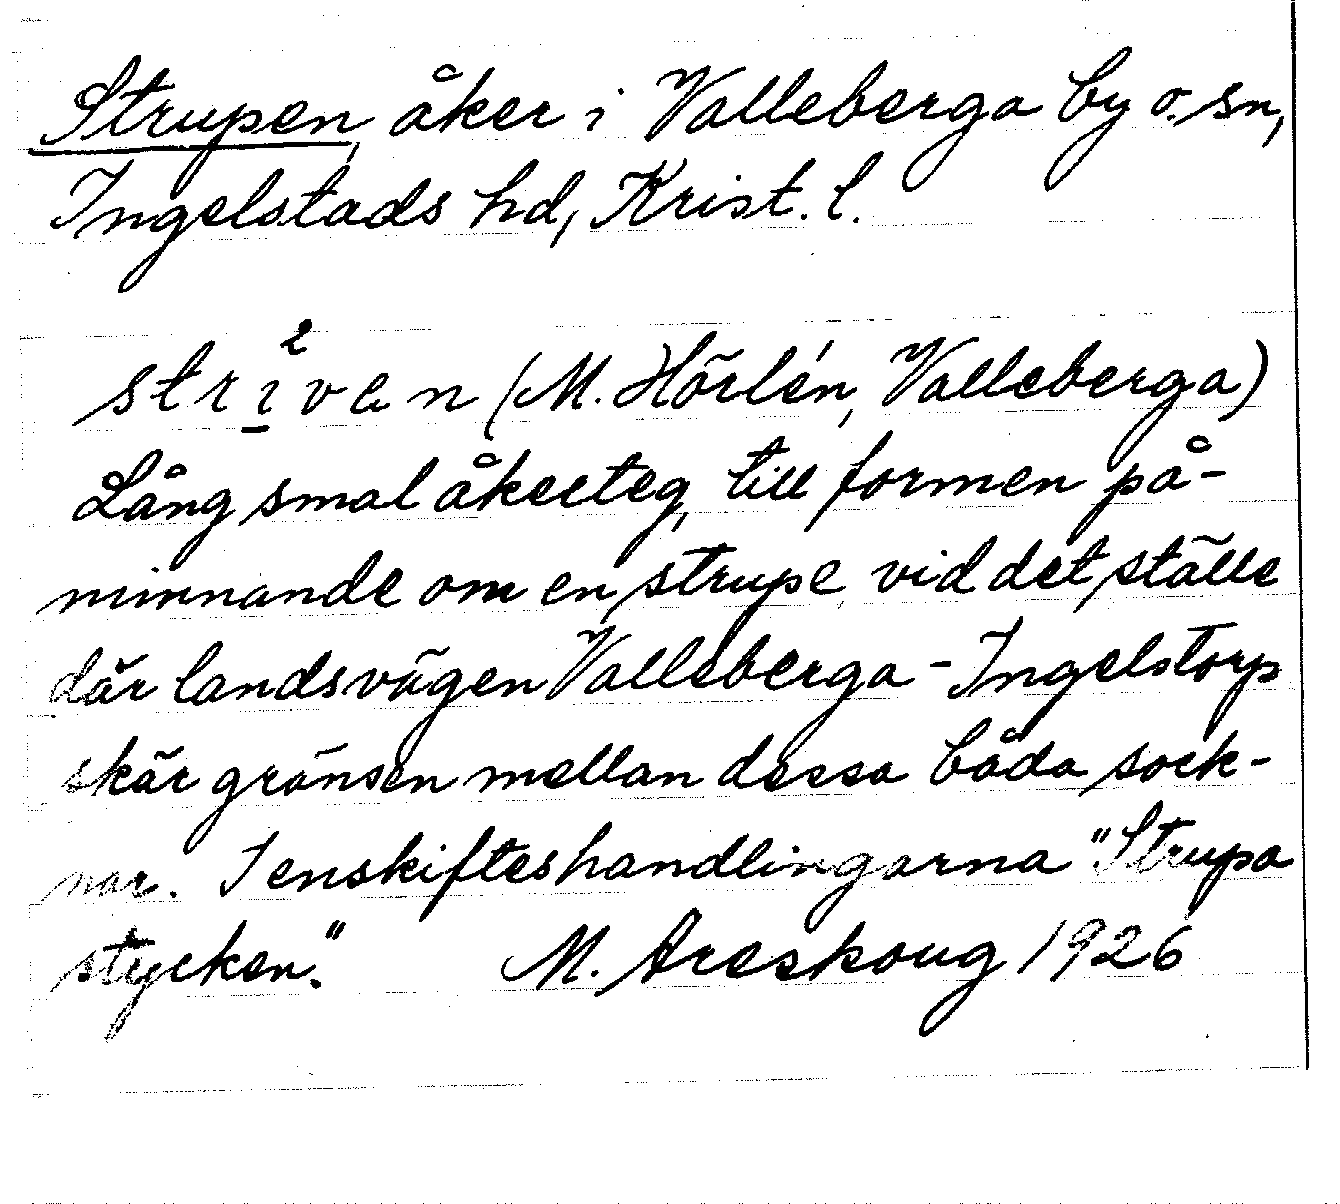 Strupen, åker i Valleberga by o. sn,
Ingelstads hd, Krist. l.
strı̱²ven (M. Hörlén, Valleberga)
Lång smal åkerteg, till formen på-
minnande om en strupe, vid det ställe
där landsvägen Valleberga-Ingelstorp
skär gränsen mellan dessa båda sock-
nar. I enskifteshandlingarna "Strupa
stycken."   M. Areskoug 1926